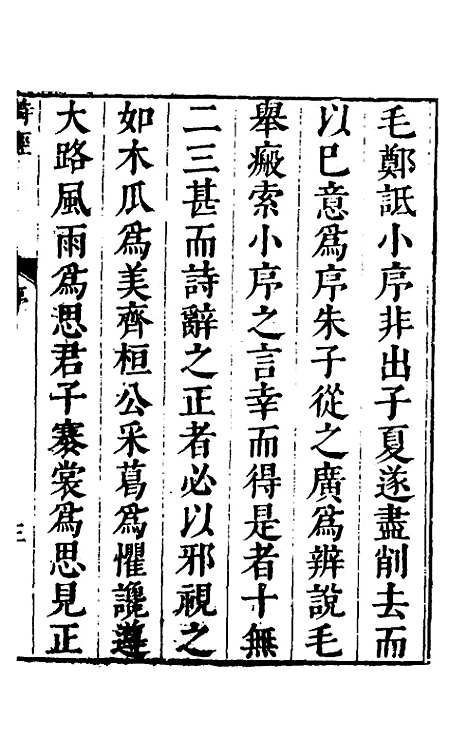 毛鄭詆小序非出子夏遂盡削去而
以巳意為序朱子從之廣為辨說毛
舉瘢索小序之言幸而得是者十無
二三甚而詩辭之正者必以邪視之
如木瓜為美齊桓公采葛為懼讒遵
大路風雨為思君子褰裳為思見正
詩經
序
三